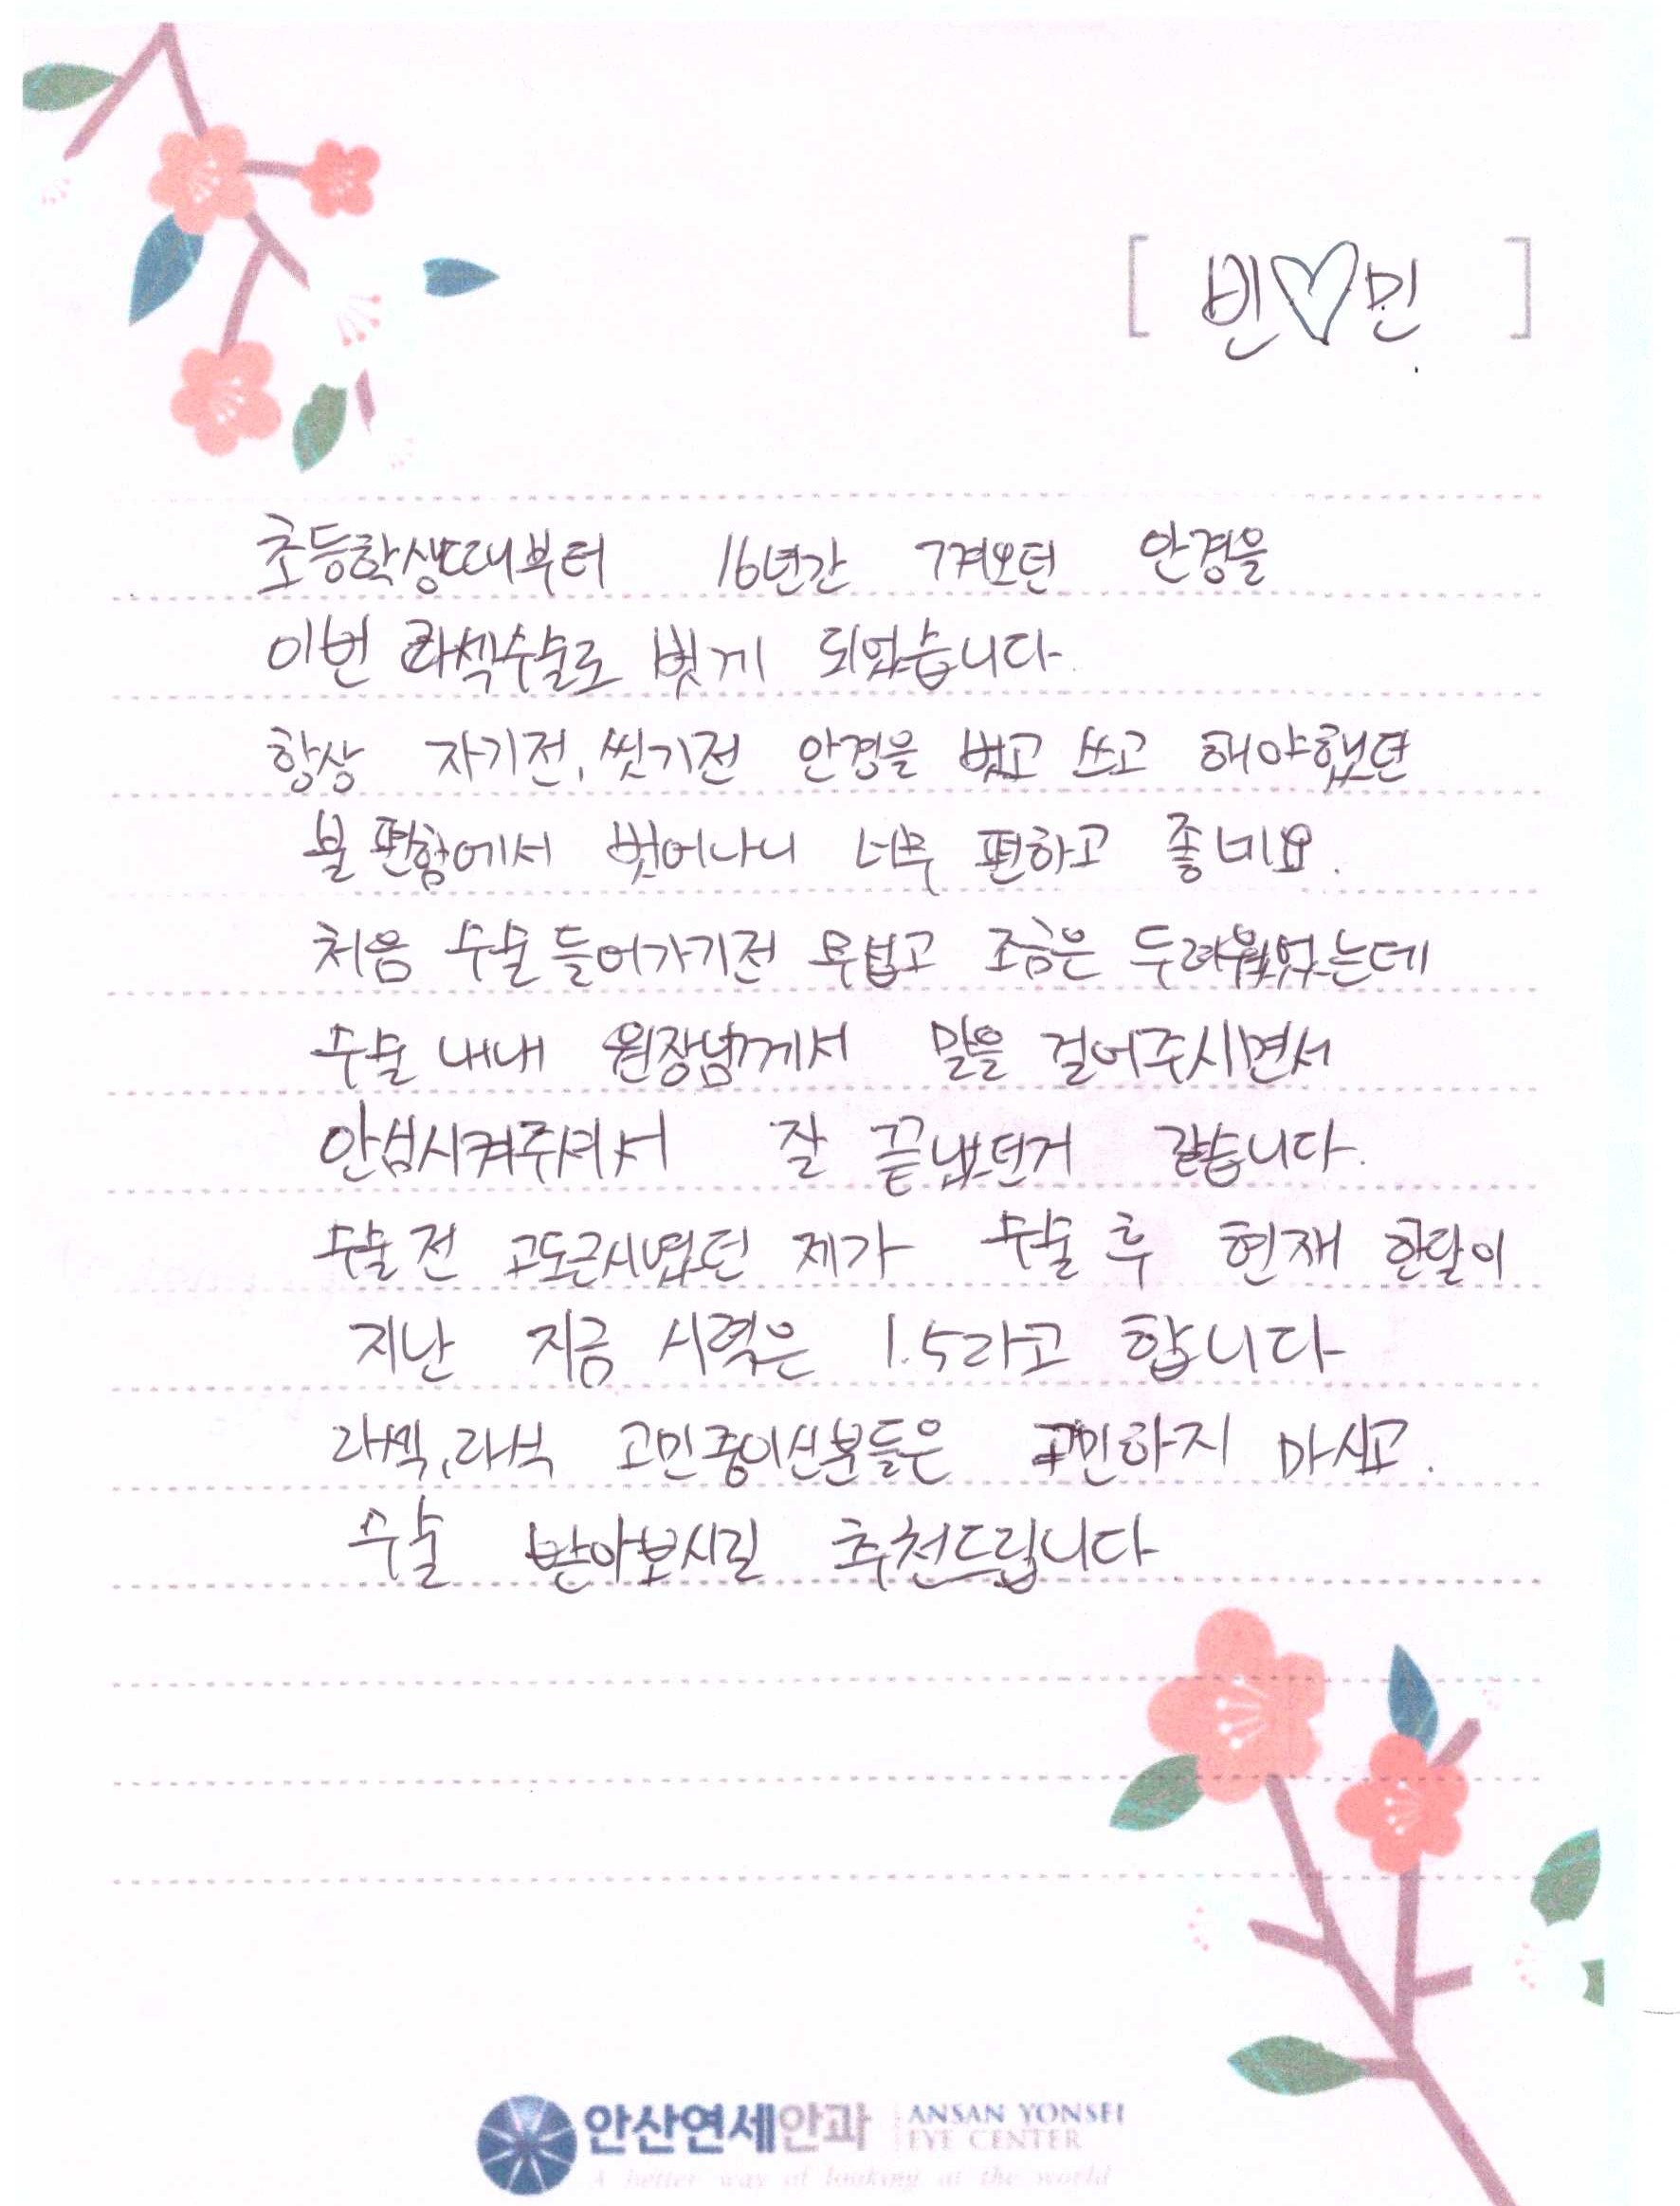 [ 빈♡민 ]
초등학생때부터 16년간 껴오던 안경을
이번 라섹수술로 벗게 되었습니다.
항상 자기전, 씻기전 안경을 벗고 쓰고 해야했던
불편함에서 벗어나니 너무 편하고 좋네요.
처음 수술 들어가기전 무섭고 조금은 두려웠었는데
수술 내내 원장님께서 말을 걸어주시면서
안심시켜주셔서 잘 끝냈던거 같습니다.
수술 전 고도근시였던 제가 수술 후 현재 한달이
지난 지금 시력은 1.5라고 합니다
라섹, 라식 고민중이신분들은 고민하지 마시고.
수술 받아보시길 추천드립니다
안산연세안과 ANSAN YONSEI
EYE CENTER
A better way of looking at the world